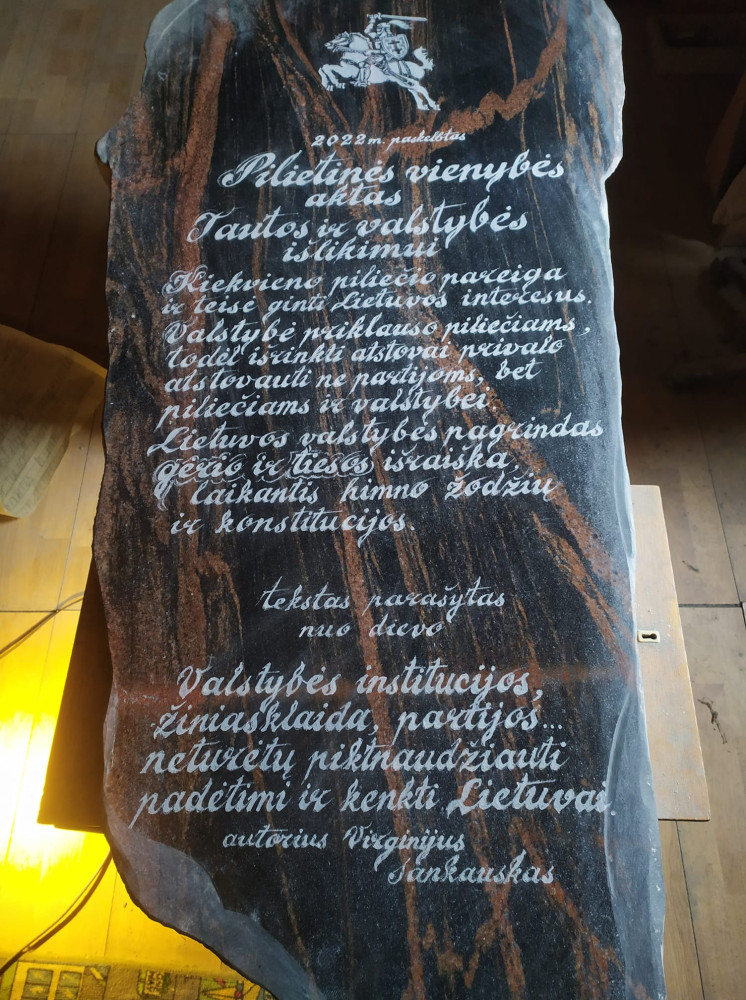 2022 m. paskelbtas
Pilietinės vienybės
aktas
Tautos ir valstybės
išlikimui
Kiekvieno piliečio pareiga
ir teisė ginti Lietuvos interesus.
Valstybė priklauso piliečiams,
todėl išrinkti atstovai privalo
atstovauti ne partijoms, bet
piliečiams ir valstybei
Lietuvos valstybės pagrindas
gėrio ir tiesos išraiška,
laikantis himno žodžių
ir konstitucijos.
tekstas parašytas
nuo dievo
Valstybės institucijos,
žiniasklaida, partijos...
neturėtų piktnaudžiauti
padėtimi ir kenkti Lietuvai.
autorius Virginijus
Jankauskas